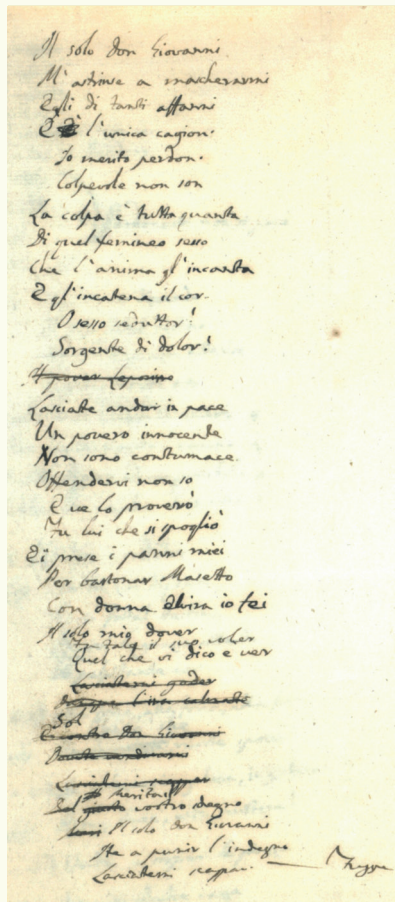 Il solo don Giovanni
M'astrinse a mascherarmi
Egli di tanti affanni
E l'unica cagion.
Io merito perdon.
Colpevole non son
La colpa è tutta quanta
Di quel femineo sesso
Che l'anima gl'incanta
E gl'incatena il cor.
O sesso seduttor!
Sorgente di dolor!
Il pover Leporino
Lasciate andar in pace
Un povero innocente
Non sono contumace
Offendervi non so
E ve lo proverò
Fu lui che si spogliò
Ei prese i panni miei
Per bastonar Masetto
Con donna Elvira io fei
Il solo mio dover
Fu tale il suo voler
Quel che vi dico e ver
Lasciatemi goder
l'ira celeste
Sol
E contro Don Giovanni
Dovete
Lasciatemi scappar
Meritai
Del giusto vostro sdegno
Il solo don Giovanni
Ite a punir l'indegno
Lasciatemi scappar. — fugge